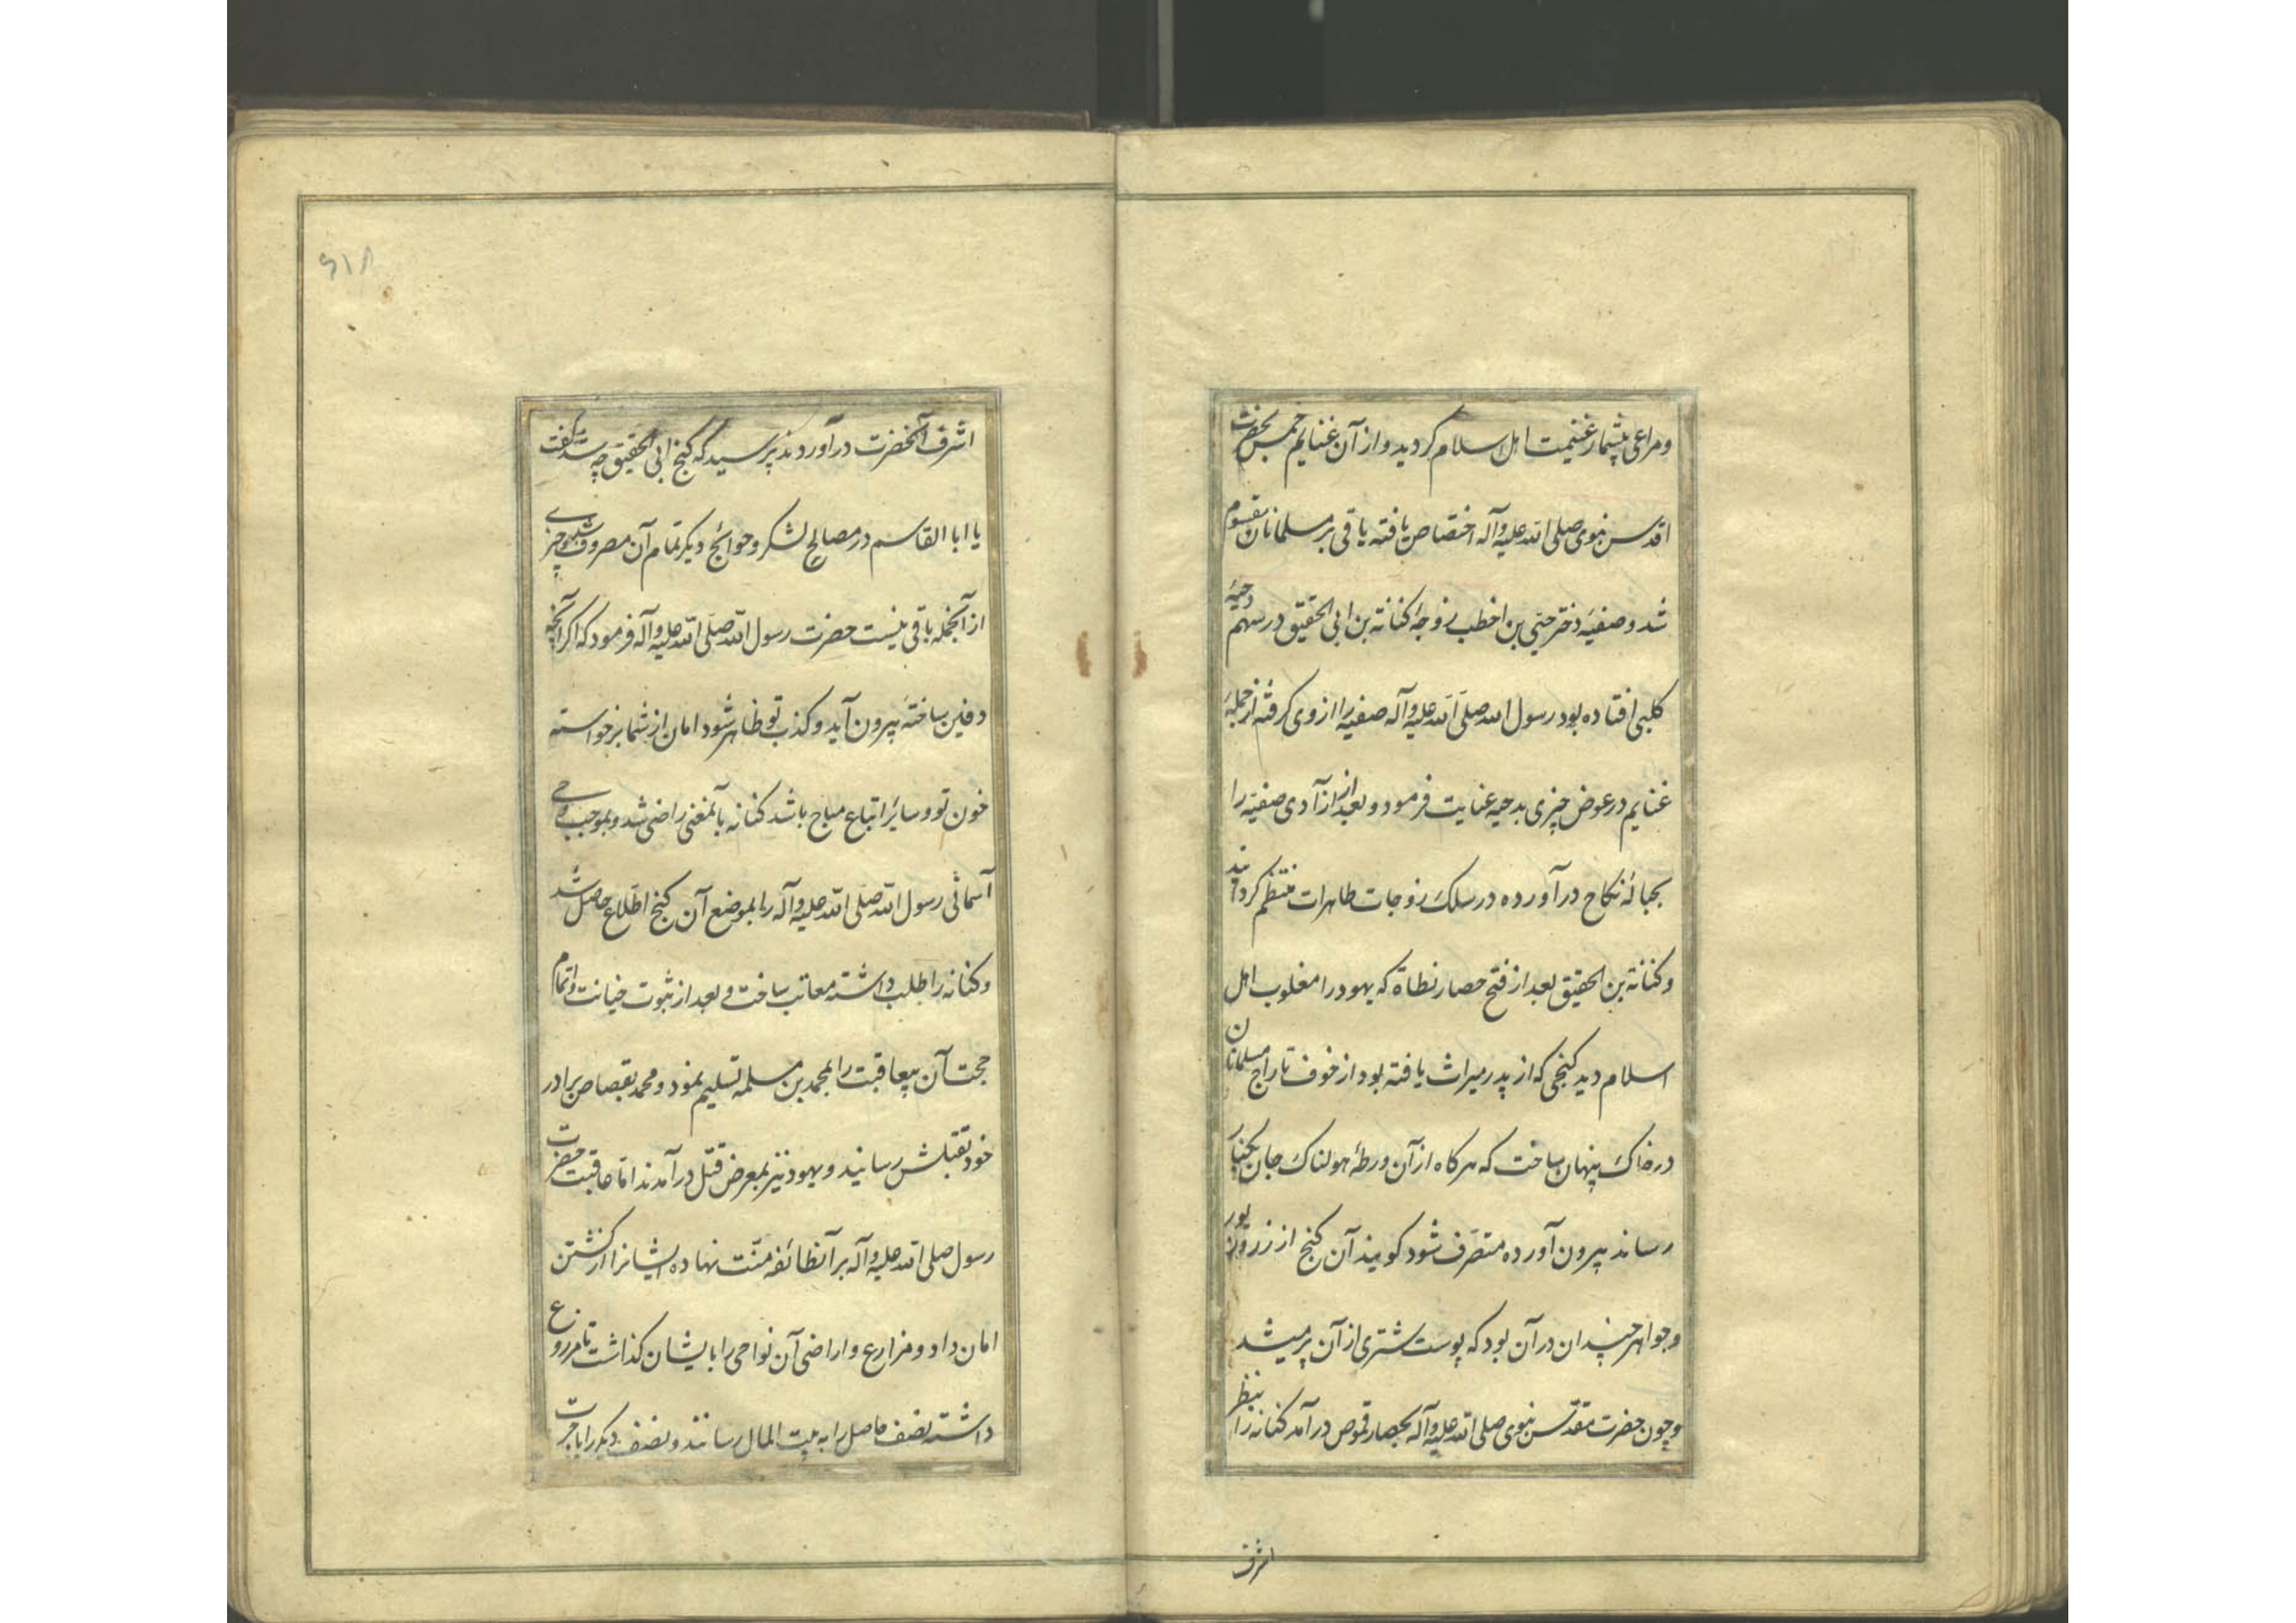 ومراعی بیشمار غنیمت اهل اسلام کردید و از آن غنایم خمس بحضرت
اقدس نبوی صلی الله علیه وآله اختصاص یافته باقی بر مسلمانان مقسوم
شد و صفیه دختر حیی بن اخطب زوجهٔ کنانة بن ابی الحقیق در سهم دحیهٔ
کلبی افتاده بود رسول الله صلی الله علیه وآله صفیه را از وی کرفته از جملهٔ
غنایم در عوض چیزی بدحیه عنایت فرمود و بعد از آن از آدی صفیه را
بحبالهٔ نکاح در آورده در سلک زوجات طاهرات منتظم کردانید
و کنانة بن الحقیق بعد از فتح حصار نطاة که یهود را مغلوب اهل
اسلام دید کنجی که از پدر میراث یافته بود از خوف تاراج مسلمانان
در خاک پنهان ساخت که هرکاه از آن ورطهٔ هولناک جان بکنار
رساند بیرون آورده متصرف شود کویند آن کنج از زر وزیور
وجواهر چندان در آن بود که پوست شتری از آن پر میشد
وچون حضرت مقدس نبوی صلی الله علیه وآله بحصار قموص در آمد کنانه را بنظر
اشرف
۶۱۸
اشرف آنحضرت در آوردند پرسید که کنج ابی الحقیق چه شد کفت
یا ابا القاسم در مصالح لشکر وحوائج دیکر تمام آن مصروف شد وچیزی
از آنجمله باقی نیست حضرت رسول الله صلی الله علیه وآله فرمود که اکر آنچه
دفین ساخته بیرون آید و کذب تو ظاهر شود امان از شما برخواسته
خون تو و سایر اتباع مباح باشد کنانه بآنمعنی راضی شد و بموجب وحی
آسمانی رسول الله صلی الله علیه وآله را بموضع آن کنج اطلاع حاصل شد
و کنانه را طلب داشته معاتب ساخت و بعد از ثبوت خیانت و اتمام
حجت آن بیعاقبت را بمحمد بن مسلمه تسلیم نمود و محمد بقصاص برادر
خود بقتلش رسانید و یهود نیز بمعرض قتل در آمدند اما عاقبت حضرت
رسول صلی الله علیه وآله بر آنطائفه منت نهاده ایشانرا از کشتن
امان داد و مزارع و اراضی آن نواحی را بایشان کذاشت تا مزروع
داشته نصف حاصل را به بیت المال رسانند و نصف دیکر را باجرت